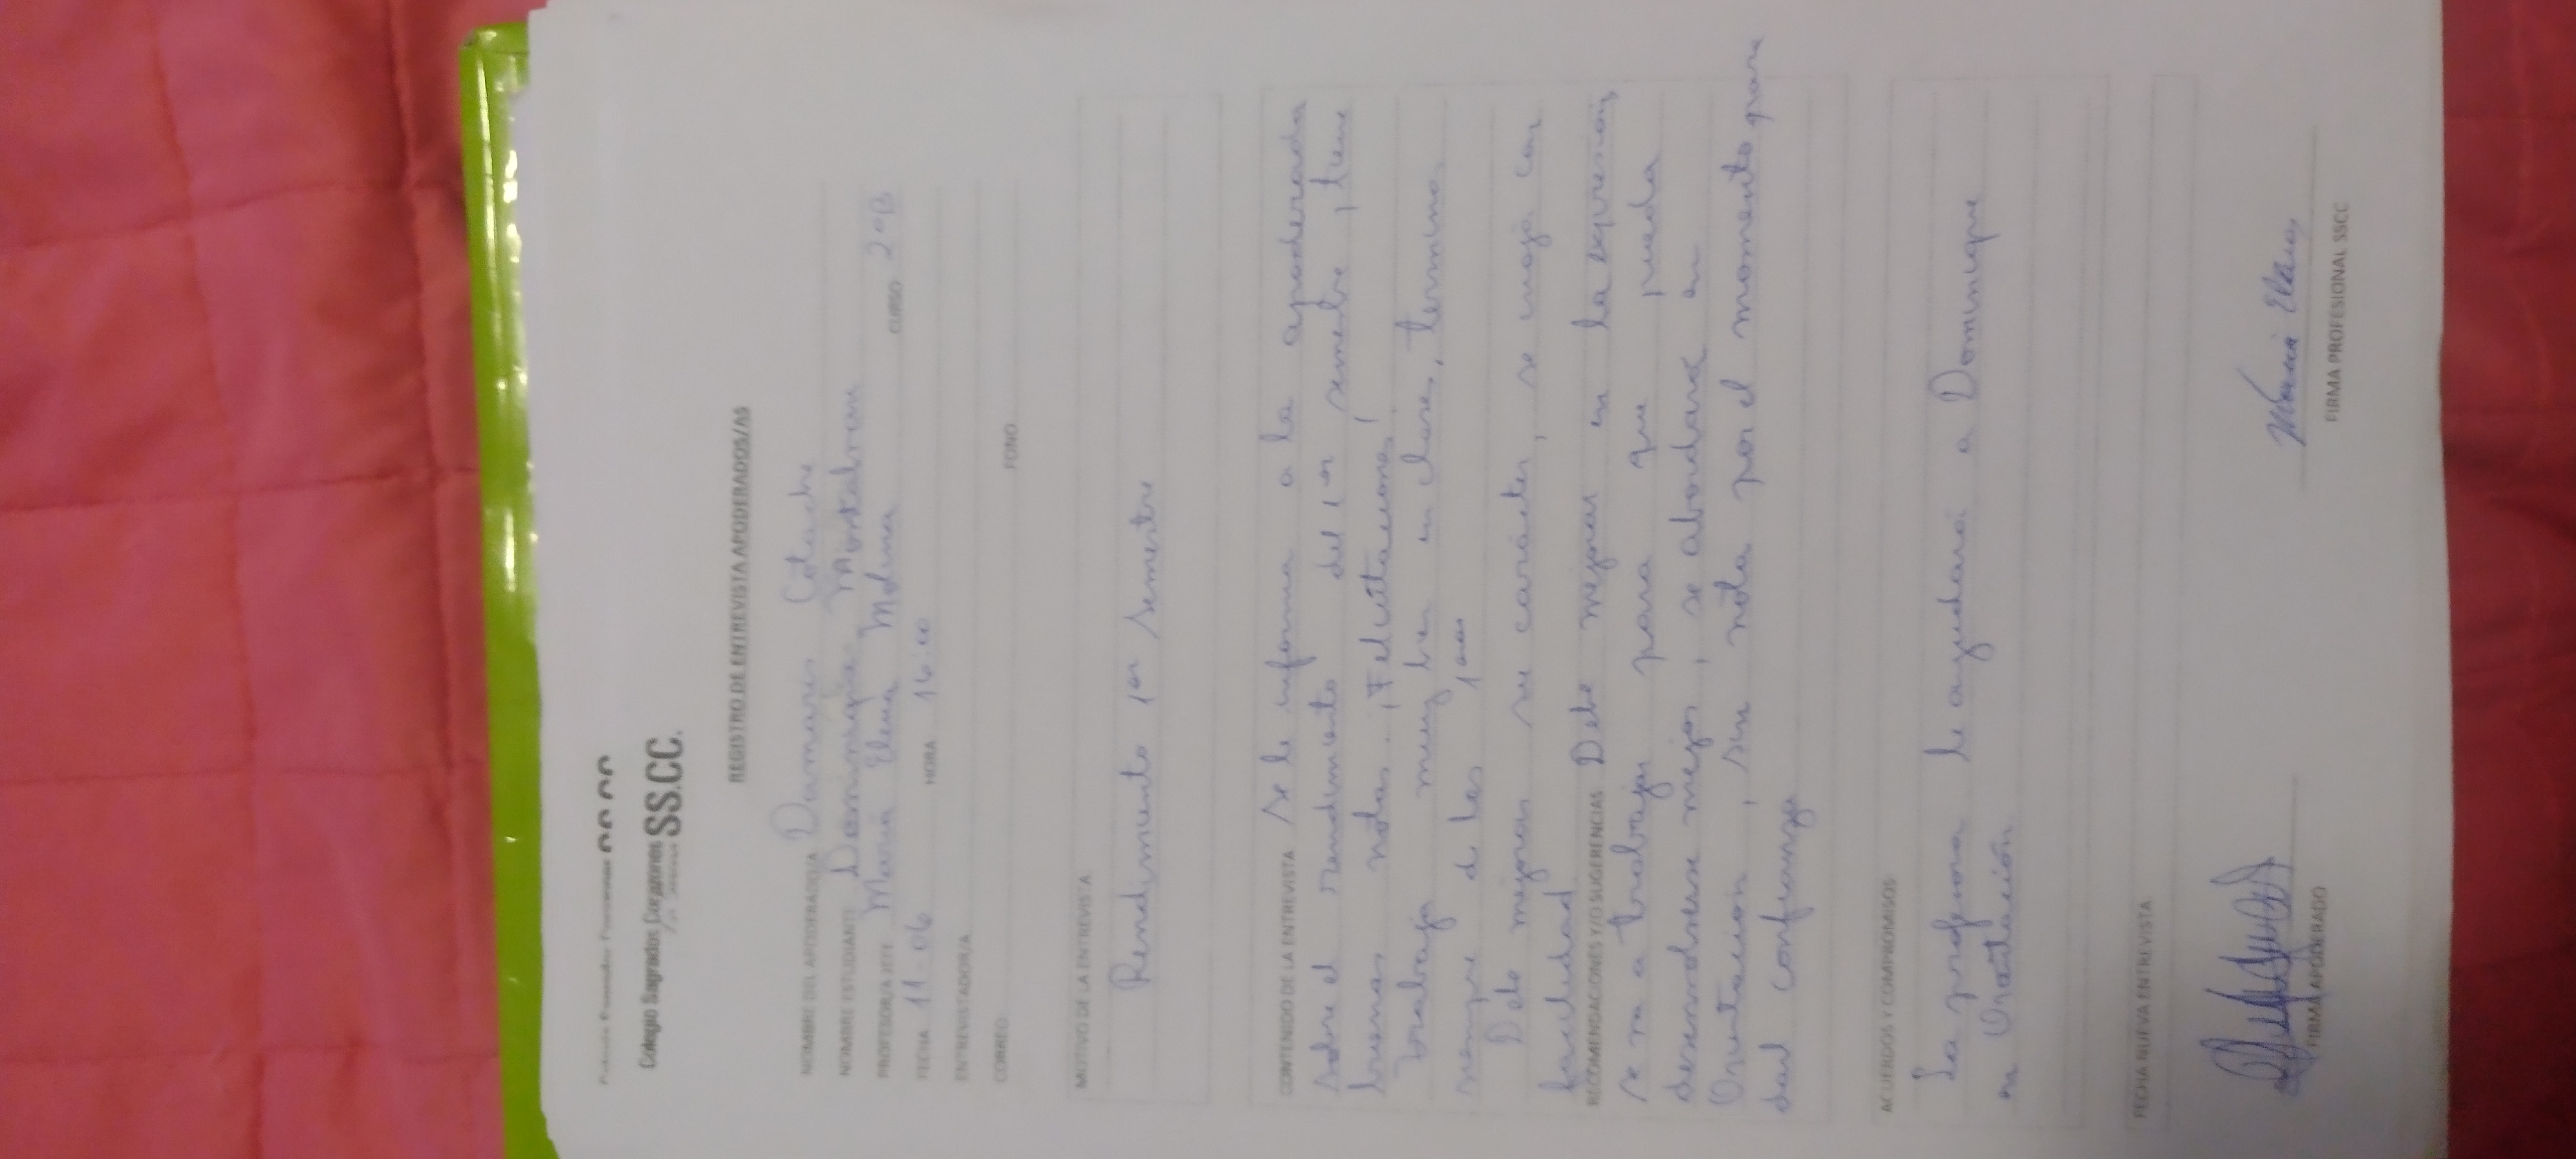 Colegio Sagrados Corazones SS.CC.
REGISTRO DE ENTREVISTA APODERADOS/AS
NOMBRE DEL APODERADO/A Damaris
NOMBRE ESTUDIANTE Dominique
PROFESOR/A JEFE María Elena Molina CURSO 2ºB
FECHA 11-06 HORA 16:00
ENTREVISTADOR/A
CORREO FONO
MOTIVO DE LA ENTREVISTA
Rendimiento 1er Semestre
CONTENIDO DE LA ENTREVISTA Se le informa a la apoderada
sobre el rendimiento del 1er semestre, tiene
buenas notas. ¡Felicitaciones!
Trabaja muy bien en clases, termina
siempre de las 1eras
Debe mejorar su carácter, se enoja con
facilidad
RECOMENDACIONES Y/O SUGERENCIAS Debe mejorar en la expresión,
se va a trabajar para que pueda
desenvolverse mejor, se abordará en
Orientación, sin nota por el momento para
dar confianza
ACUERDOS Y COMPROMISOS
La profesora le ayudará a Dominique
en
FECHA NUEVA ENTREVISTA
María Elena
FIRMA APODERADO FIRMA PROFESIONAL SSCC